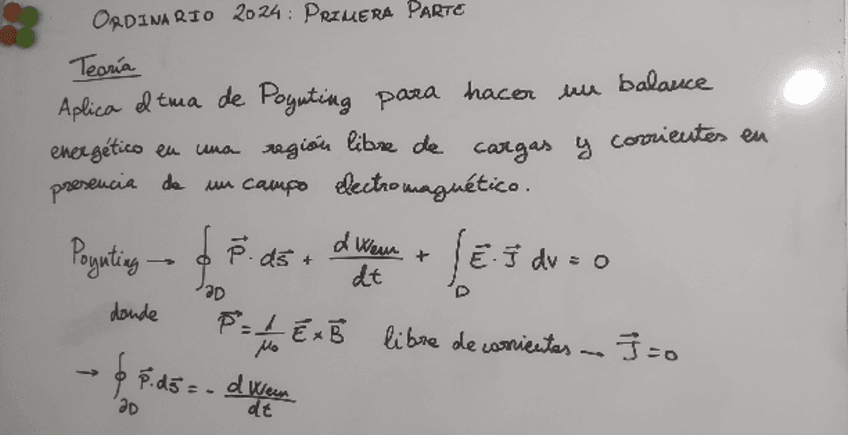 ORDINARIO 2024: PRIMERA PARTE
Teoría
Aplica el tma de Poynting para hacer un balance
energético en una región libre de cargas y corrientes en
presencia de un campo electromagnético.
Poynting → ∮_∂D P⃗·ds⃗ + dWem/dt + ∫_D E⃗·J⃗ dv = 0
donde P⃗ = 1/μ₀ E⃗×B⃗ libre de corrientes → J⃗=0
→ ∮_∂D P⃗·ds⃗ = - dWem/dt